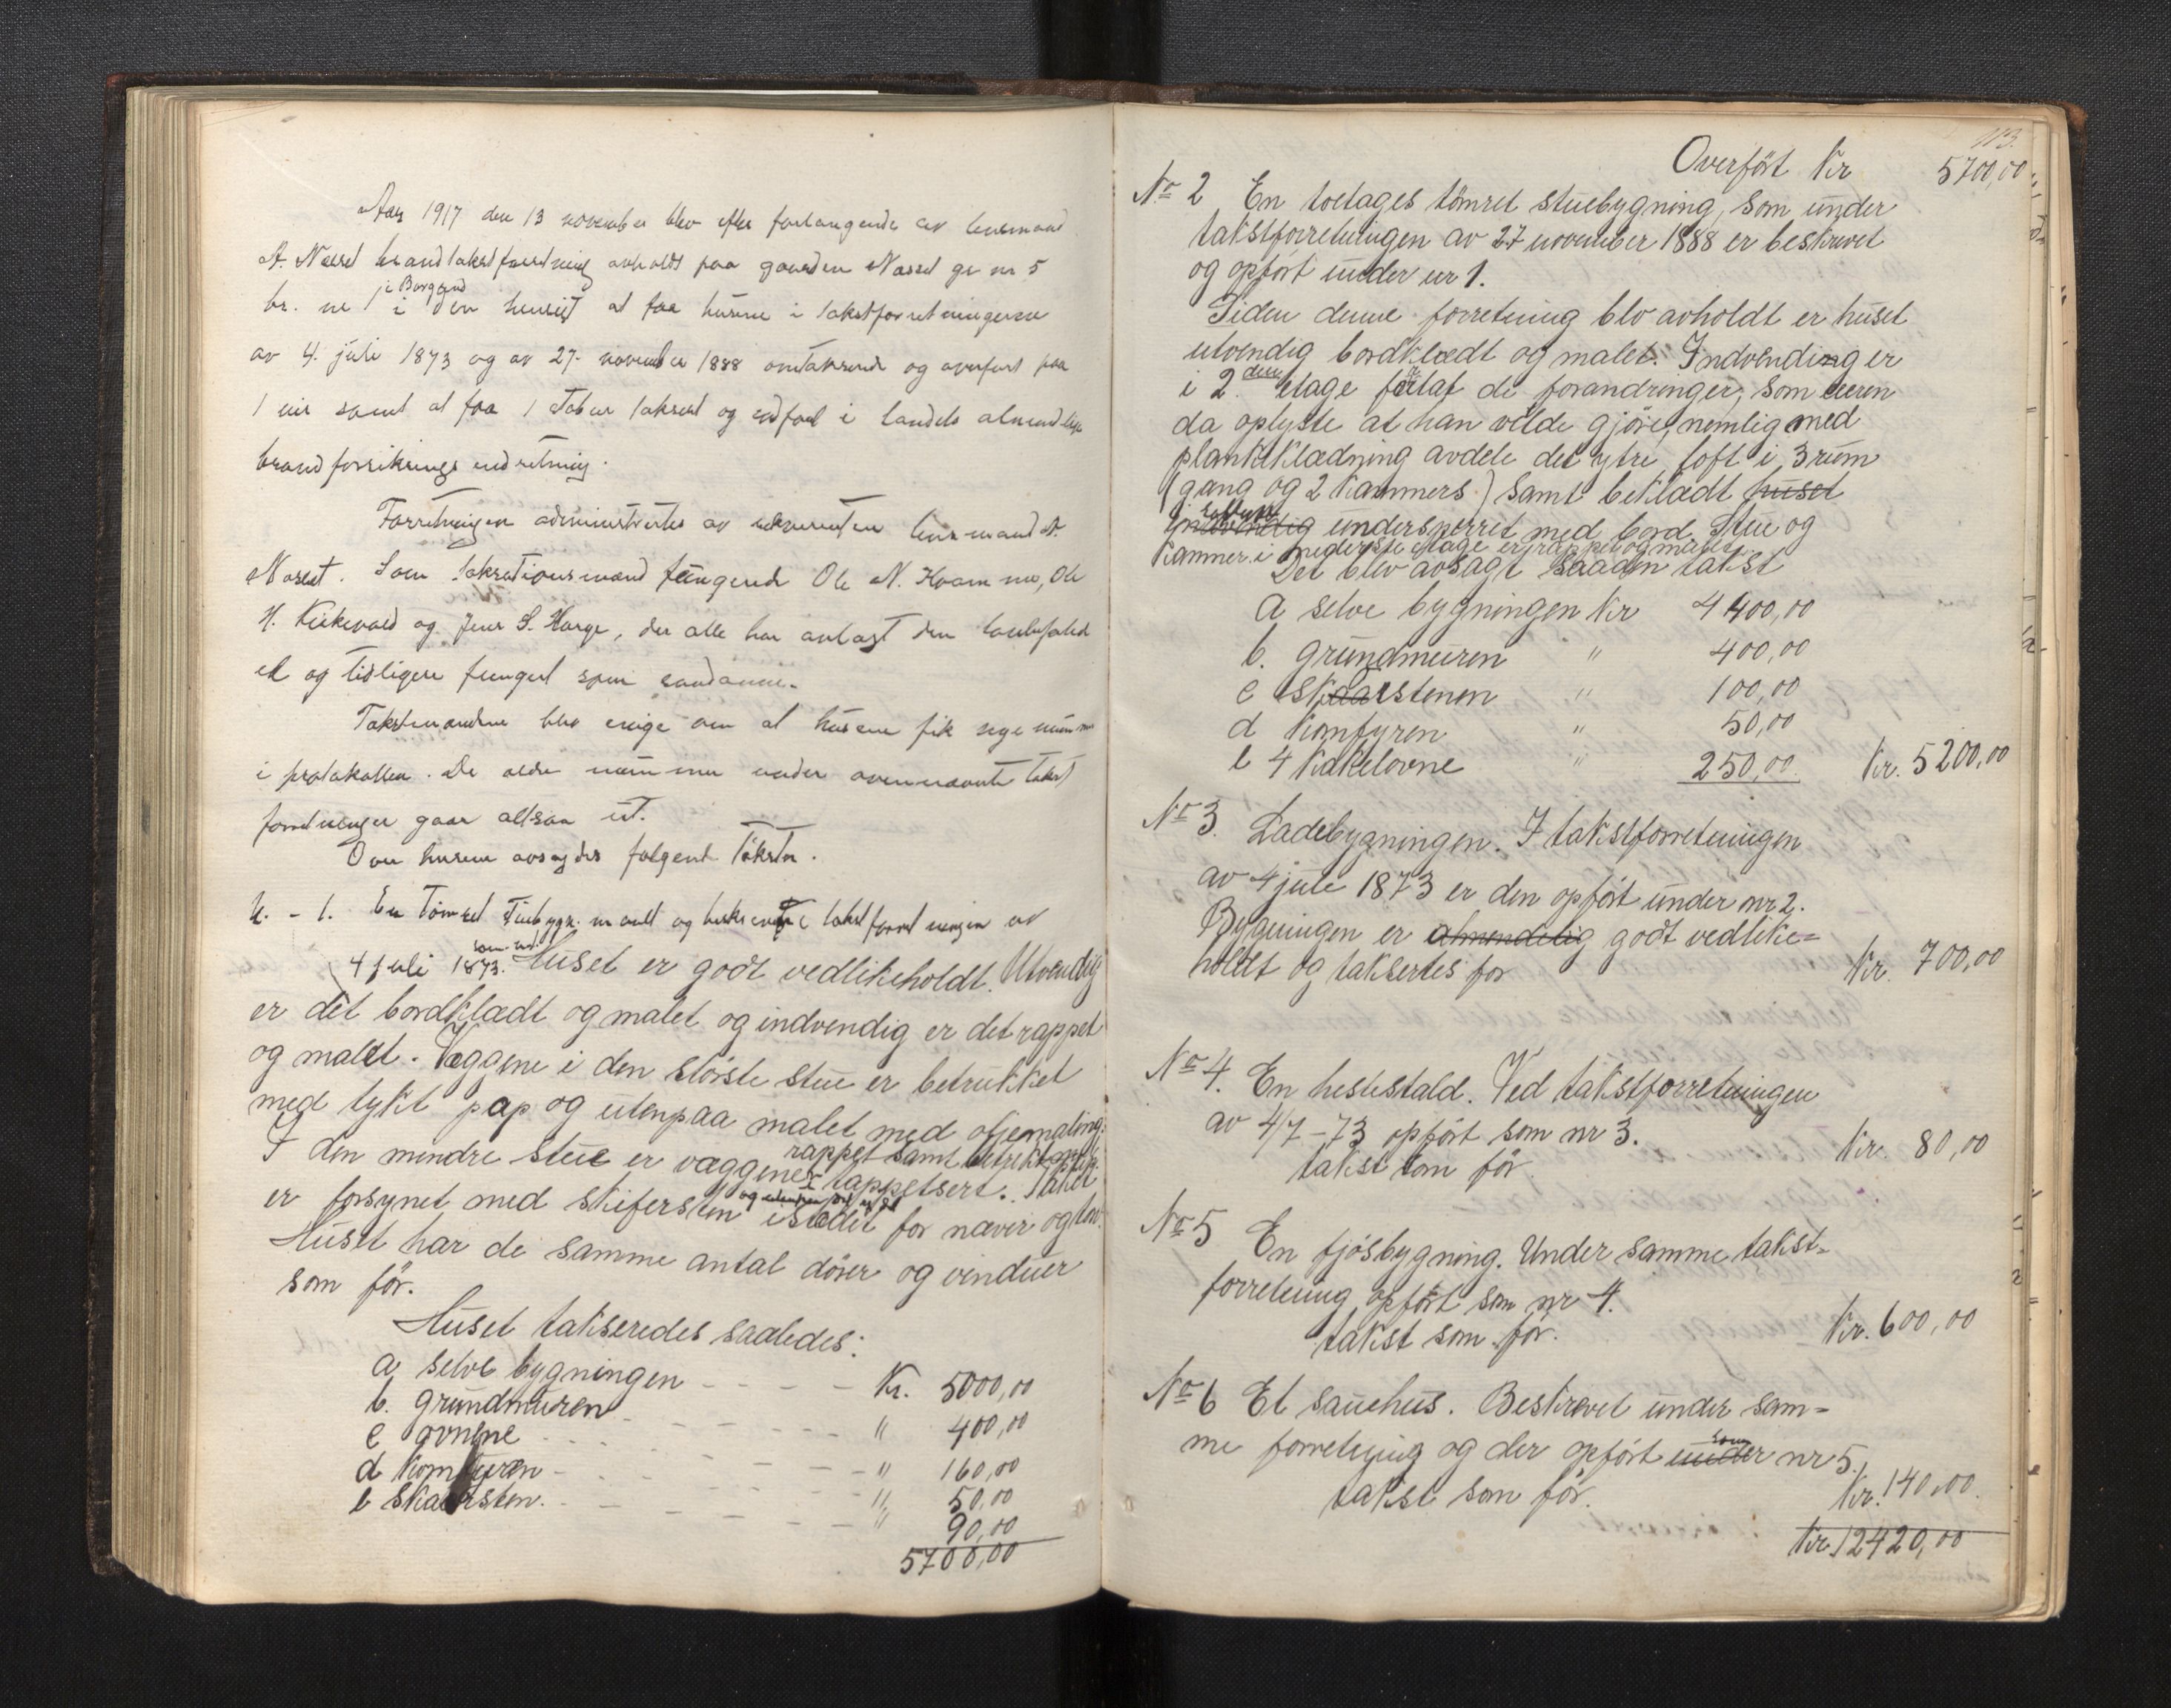 Aar 1917 den 13 november blev efter forlangende av lensmand
A. Næsset brandtakstforretning avholdt paa gaarden Næsset gr nr 5
br. nr 1 i Borgund i den hensigt at faa husene i takstforretningerne
av 4. juli 1873 og av 27. november 1888 omtakserede og overført paa
1 eier samt at faa takseret og indført i landets almindelige
brandforsikrings indretning.
Forretningen administrertes av rekvirenten lensmand A.
Næsset. Som taksationsmænd fungerede Ole N. Hvam mo, Ole
H. Kirkevold og Jens S. Hauge, der alle har avlagt den lovbefalede
ed og tidligere fungert som saadanne.
Takstmændene blev enige om at husene fik nye nummer
i protokollen. De ældre nummer under ovennævnte takst
forretninger gaar altsaa ut.
Over husene avsagdes følgende takster.
N. - 1. En tømret stuebygn. nævnt og beskrevet i takstforretningen av
4 juli 1873. som nr 1. Huset er godt vedlikeholdt. Utvendig
er det bordklædt og malet og indvendig er det rappet
og malet. Væggene i den største stue er betrukket
med tykt pap og utenpaa malet med oljemaling.
I den mindre stue er væggene rappet samt betrukt med pap. tappetsert. Taket
er forsynet med skifersten istedet for næver og torv.
Huset har de samme antal dører og vinduer
som før.
Huset takseredes saaledes:
a selve bygningen - - - - Kr. 5000,00
b. grundmuren - - - - " 400,00
c ovnene - - - - " 160,00
d komfyren - - - - " 50,00
e skaarsten. - - - - " 90,00
5700,00
113.
Overført Kr 5700,00
No 2 En toetages tømret stuebygning, som under
takstforretningen av 27 november 1888 er beskrevet
og opført under nr 1.
Siden denne forretning blv avholdt er huset
utvendig bordklædt og malet. Indvending er
i 2. den etage fortat de forandringer, som eieren
da oplyste at han vilde gjøre, nemlig med
plankeklædning avdele det ytre loft i 3 rum
(gang og 2 kammers) samt beklædt huset
indvendig loftets undersperret med bord. Stue og
kammer i nederste etage er rappet og malet.
Det blev avsagt saadan takst
a selve bygningen Kr 4400,00
b. grundmuren " 400,00
c skaarstenen " 100,00
d komfyren " 50,00
e 4 kakelovne " 250,00 Kr. 5200,00
No 3. Ladebygningen. I takstforretningen
av 4 jule 1873 er den opført under nr 2.
Bygningen er almendelig godt vedlike=
holdt og taksertes for Kr. 700,00
No 4. En hestestald. Ved takstforretningen
av 4/7-73 opført som nr 3.
takst som før Kr. 80,00
No 5 En fjøsbygning. Under samme takst=
forretning opført som nr 4.
takst som før. Kr. 600,00
No 6 Et sauehus. Beskrevet under sam=
me forretning og der opført under som nr 5.
takst som før. Kr. 140,00.
Kr. 12420,00